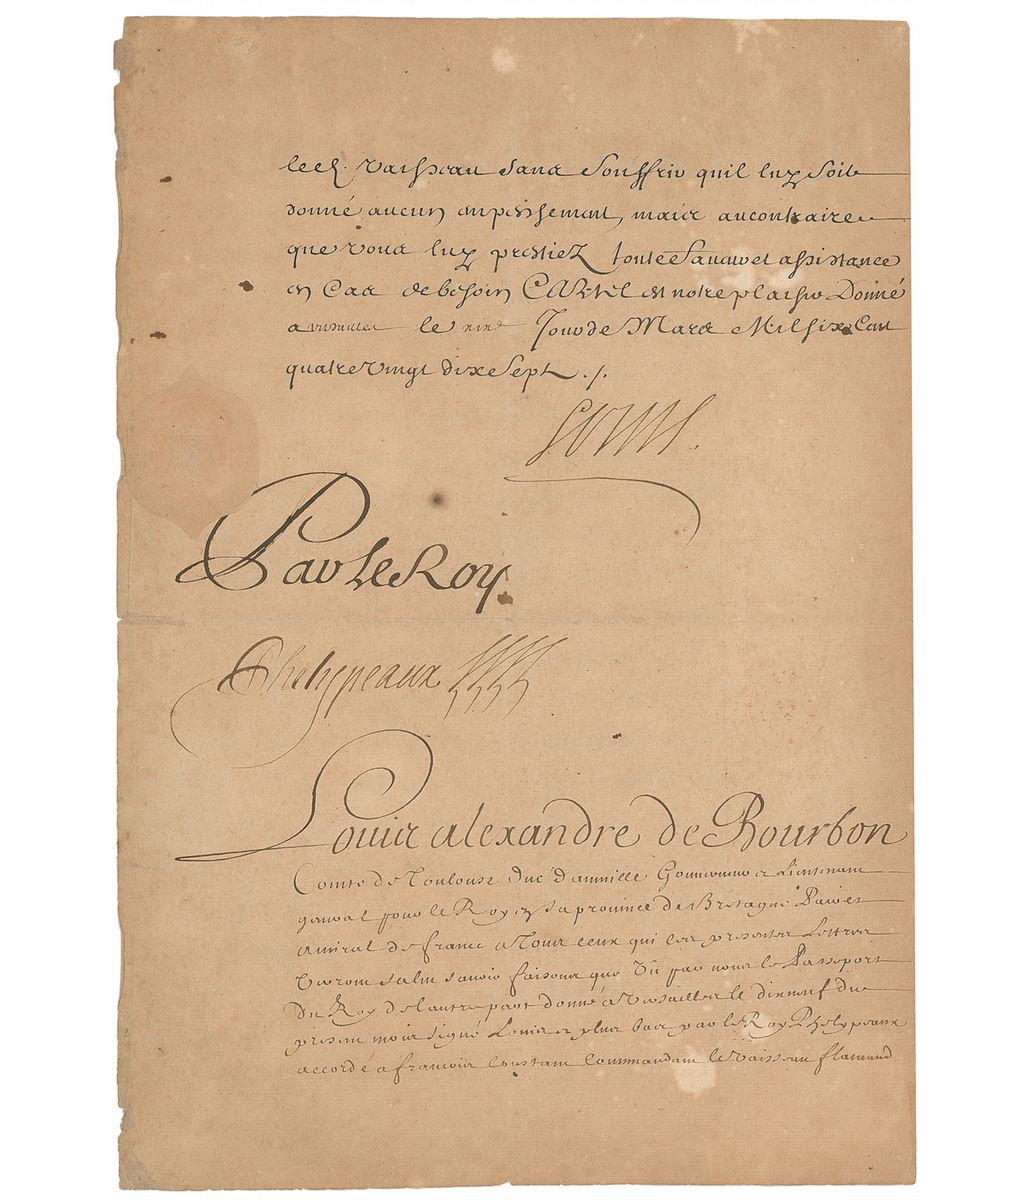 led. vaisseau sans Souffrir quil luy Soit
donné aucun empeschement, mais aucontraire
que vous luy prestiez toutte faveur et assistance
en Cas debesoin CAR TEL est notre plaisir Donné
a versailles le Jour de Mars Mil six Cent
quatre vingt dix e Sept ./.
Louis.
Par le Roy
Phelypeaux
Louis alexandre de Bourbon
Comte de Toulouse Duc damville Gouverneur et Lieutenant
general pour le Roy en sa province de Bretagne Pair et
amiral de france a Tous ceux qui ces presentes Lettres
verront salut scavoir faisons que Vu par nous le Passeport
du Roy de lautre part donné a Versailles le dixneuf du
present mois signé Louis et plus bas par le Roy Phelypeaux
accordé a francois Constant Commandant le vaisseau flamand